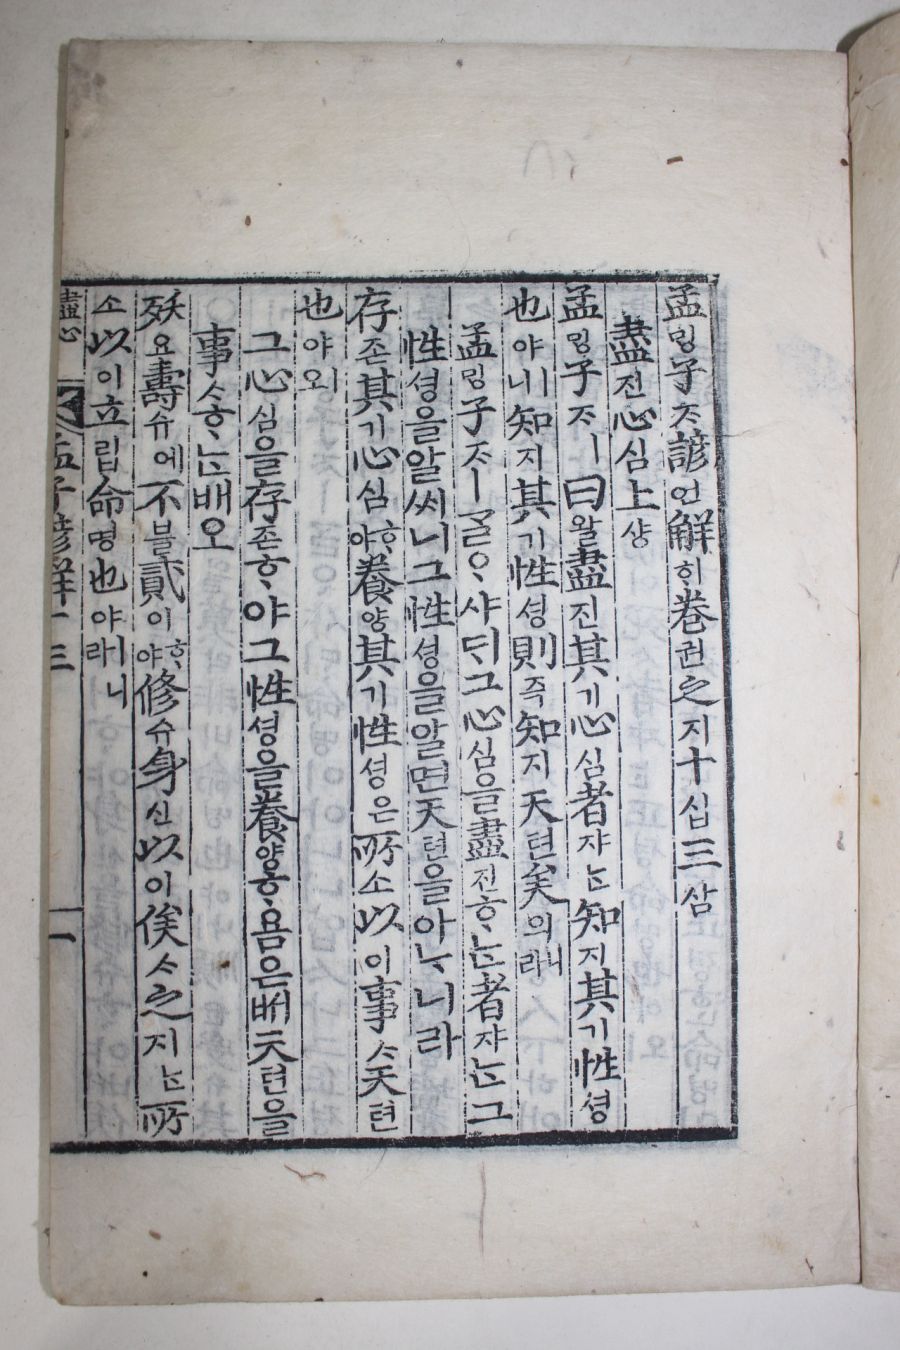 孟ᄆᆡᆼ子ᄌᆞ諺언解ᄒᆡ卷권之지十십三삼
盡진心심上샹
孟ᄆᆡᆼ子ᄌᆞㅣ曰왈盡진其기心심者쟈ᄂᆞᆫ知지其기性셩
也야ㅣ니知지其기性셩則즉知지天텬矣의니라
孟ᄆᆡᆼ子ᄌᆞㅣᄀᆞᆯᄋᆞ샤ᄃᆡ그心심을盡진ᄒᆞᄂᆞᆫ者쟈ᄂᆞᆫ그
性셩을알ᄭᅵ니그性셩을알면天텬을아ᄂᆞ니라
存존其기心심ᄒᆞ야養양其기性셩은所소以이事ᄉᆞ天텬
也야ㅣ오
그心심을存존ᄒᆞ야그性셩을養양홈은ᄡᅥ天텬을
事ᄉᆞᄒᆞᄂᆞᆫ배오
殀요壽슈에不블貳이ᄒᆞ야修슈身신以이俟ᄉᆞ之지ᄂᆞᆫ所
소以이立립命명也야ㅣ니라
盡心
孟子諺解十三
一